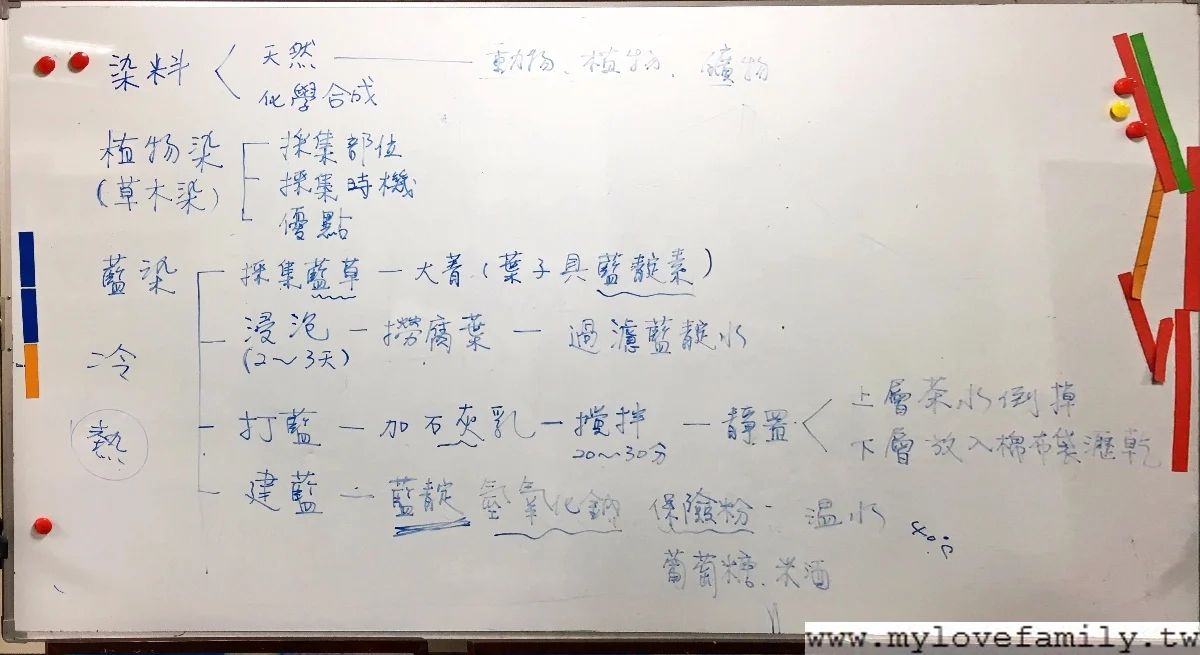 染料 < 天然 —— 動物、植物、礦物
化學合成
植物染 採集部位
(草木染) 採集時機
優點
藍染 採集藍草 — 大菁 (葉子具藍靛素)
浸泡 — 撈腐葉 — 過濾藍靛水
(2~3天)
冷
打藍 — 加石灰乳 — 攪拌 — 靜置 < 上層茶水倒掉
20~30分 下層放入棉布袋瀝乾
熱
建藍 — 藍靛 氫氧化鈉 保險粉 - 溫水
40°C
葡萄糖、米酒
www.mylovefamily.tw